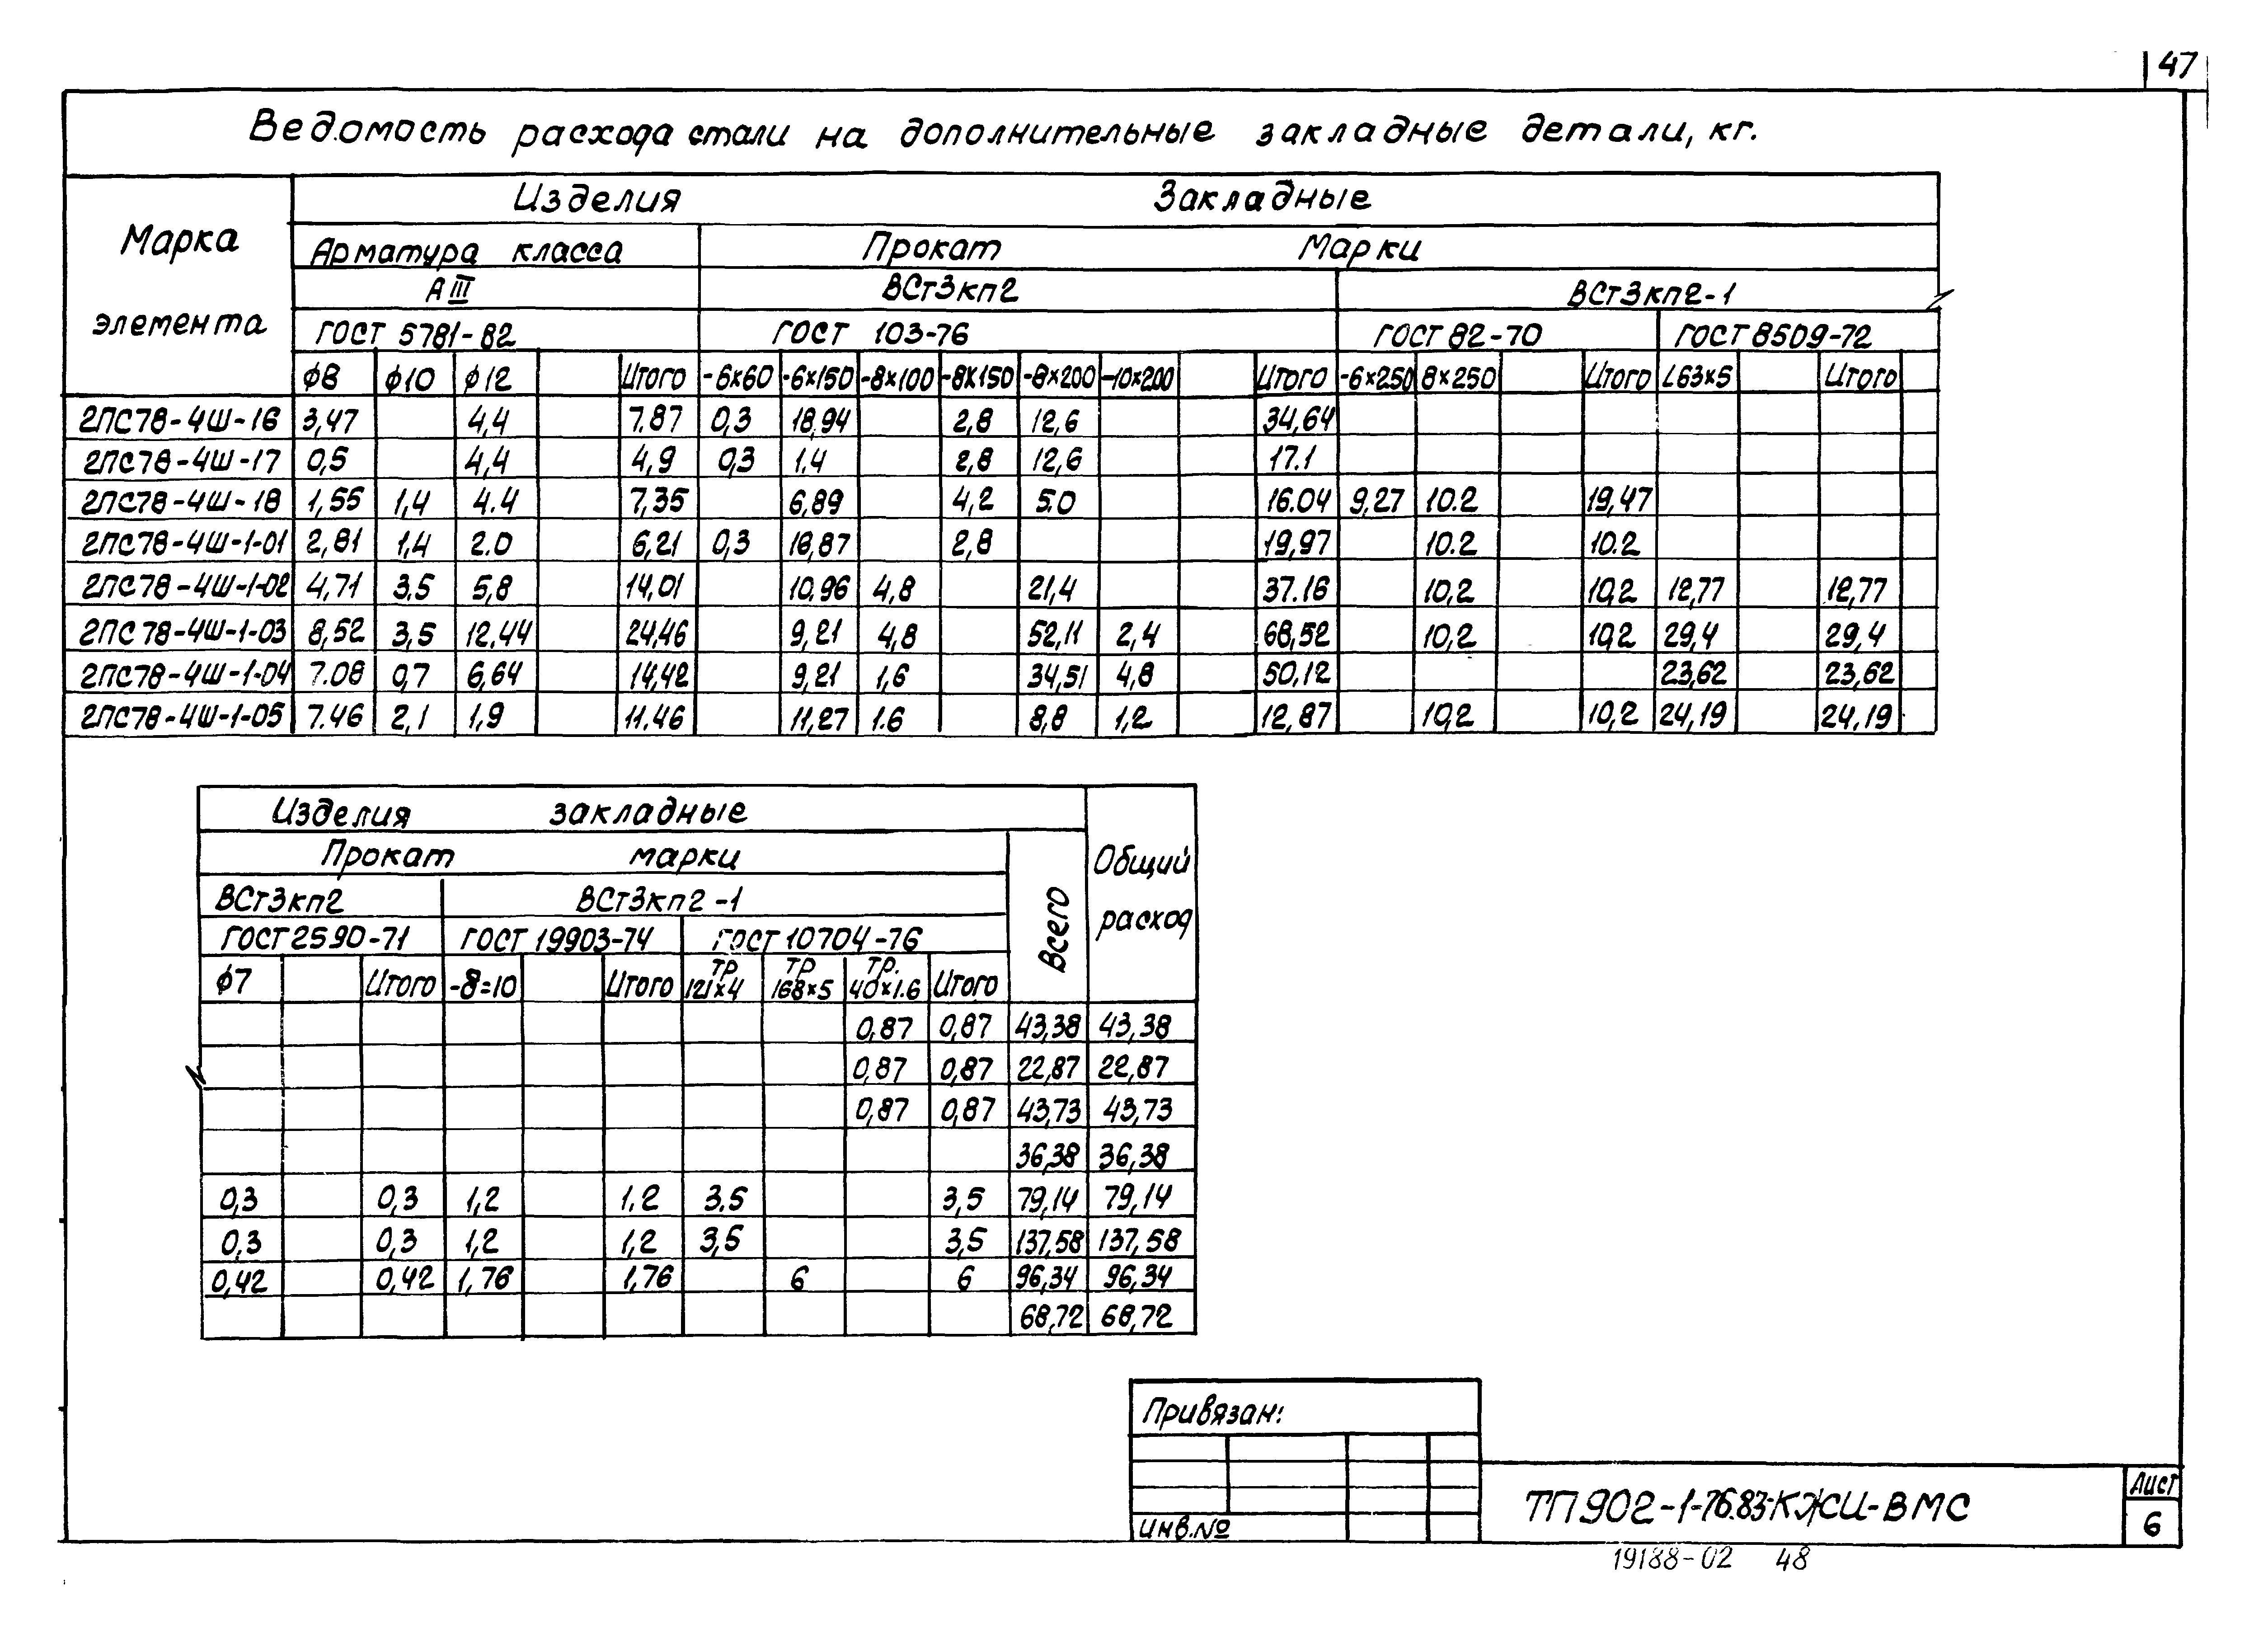 47
Ведомость расхода стали на дополнительные закладные детали, кг.
Марка элемента
Изделия Закладные
Арматура класса Прокат Марки
АIII ВСт3кп2 ВСт3кп2-1
ГОСТ 5781-82 ГОСТ 103-76 ГОСТ 82-70 ГОСТ 8509-72
ϕ8 ϕ10 ϕ12 Итого -6×60 -6×150 -8×100 -8×150 -8×200 -10×200 Итого -6×250 8×250 Итого L63×5 Итого
2ПС78-4Ш-16 3,47 4,4 7.87 0,3 18,94 2,8 12,6 34,64
2ПС78-4Ш-17 0,5 4,4 4,9 0,3 1.4 2,8 12,6 17.1
2ПС78-4Ш-18 1,55 1,4 4.4 7,35 6,89 4,2 5.0 16.04 9,27 10.2 19,47
2ПС78-4Ш-1-01 2,81 1,4 2.0 6,21 0,3 16,87 2,8 19,97 10.2 10.2
2ПС78-4Ш-1-02 4,71 3.5 5,8 14,01 10,96 4,8 21,4 37.16 10,2 10,2 12,77 12,77
2ПС78-4Ш-1-03 8,52 3,5 12,44 24,46 9,21 4,8 52,11 2,4 68,52 10,2 10,2 29,4 29,4
2ПС78-4Ш-1-04 7.08 0,7 6,64 14,42 9,21 1,6 34,51 4,8 50,12 23,62 23,62
2ПС78-4Ш-1-05 7.46 2,1 1,9 11.46 11,27 1.6 8,8 1,2 12,87 10,2 10,2 24,19 24,19
Изделия закладные
Прокат марки Всего Общий расход
ВСт3кп2 ВСт3кп2-1
ГОСТ 2590-71 ГОСТ 19903-74 ГОСТ 10704-76
ϕ7 Итого -δ=10 Итого ТР 121×4 ТР 168×5 ТР. 40×1.6 Итого
0,87 0,87 43,38 43,38
0,87 0,87 22,87 22,87
0,87 0,87 43,73 43,73
36,38 36,38
0,3 0,3 1,2 1,2 3,5 3,5 79,14 79,14
0,3 0,3 1,2 1,2 3,5 3,5 137,58 137,58
0,42 0,42 1,76 1,76 6 6 96,34 96,34
68,72 68,72
Привязан:
Инв.№
ТП902-1-76.83-КЖИ-ВМС
Лист
6
19188-02 48